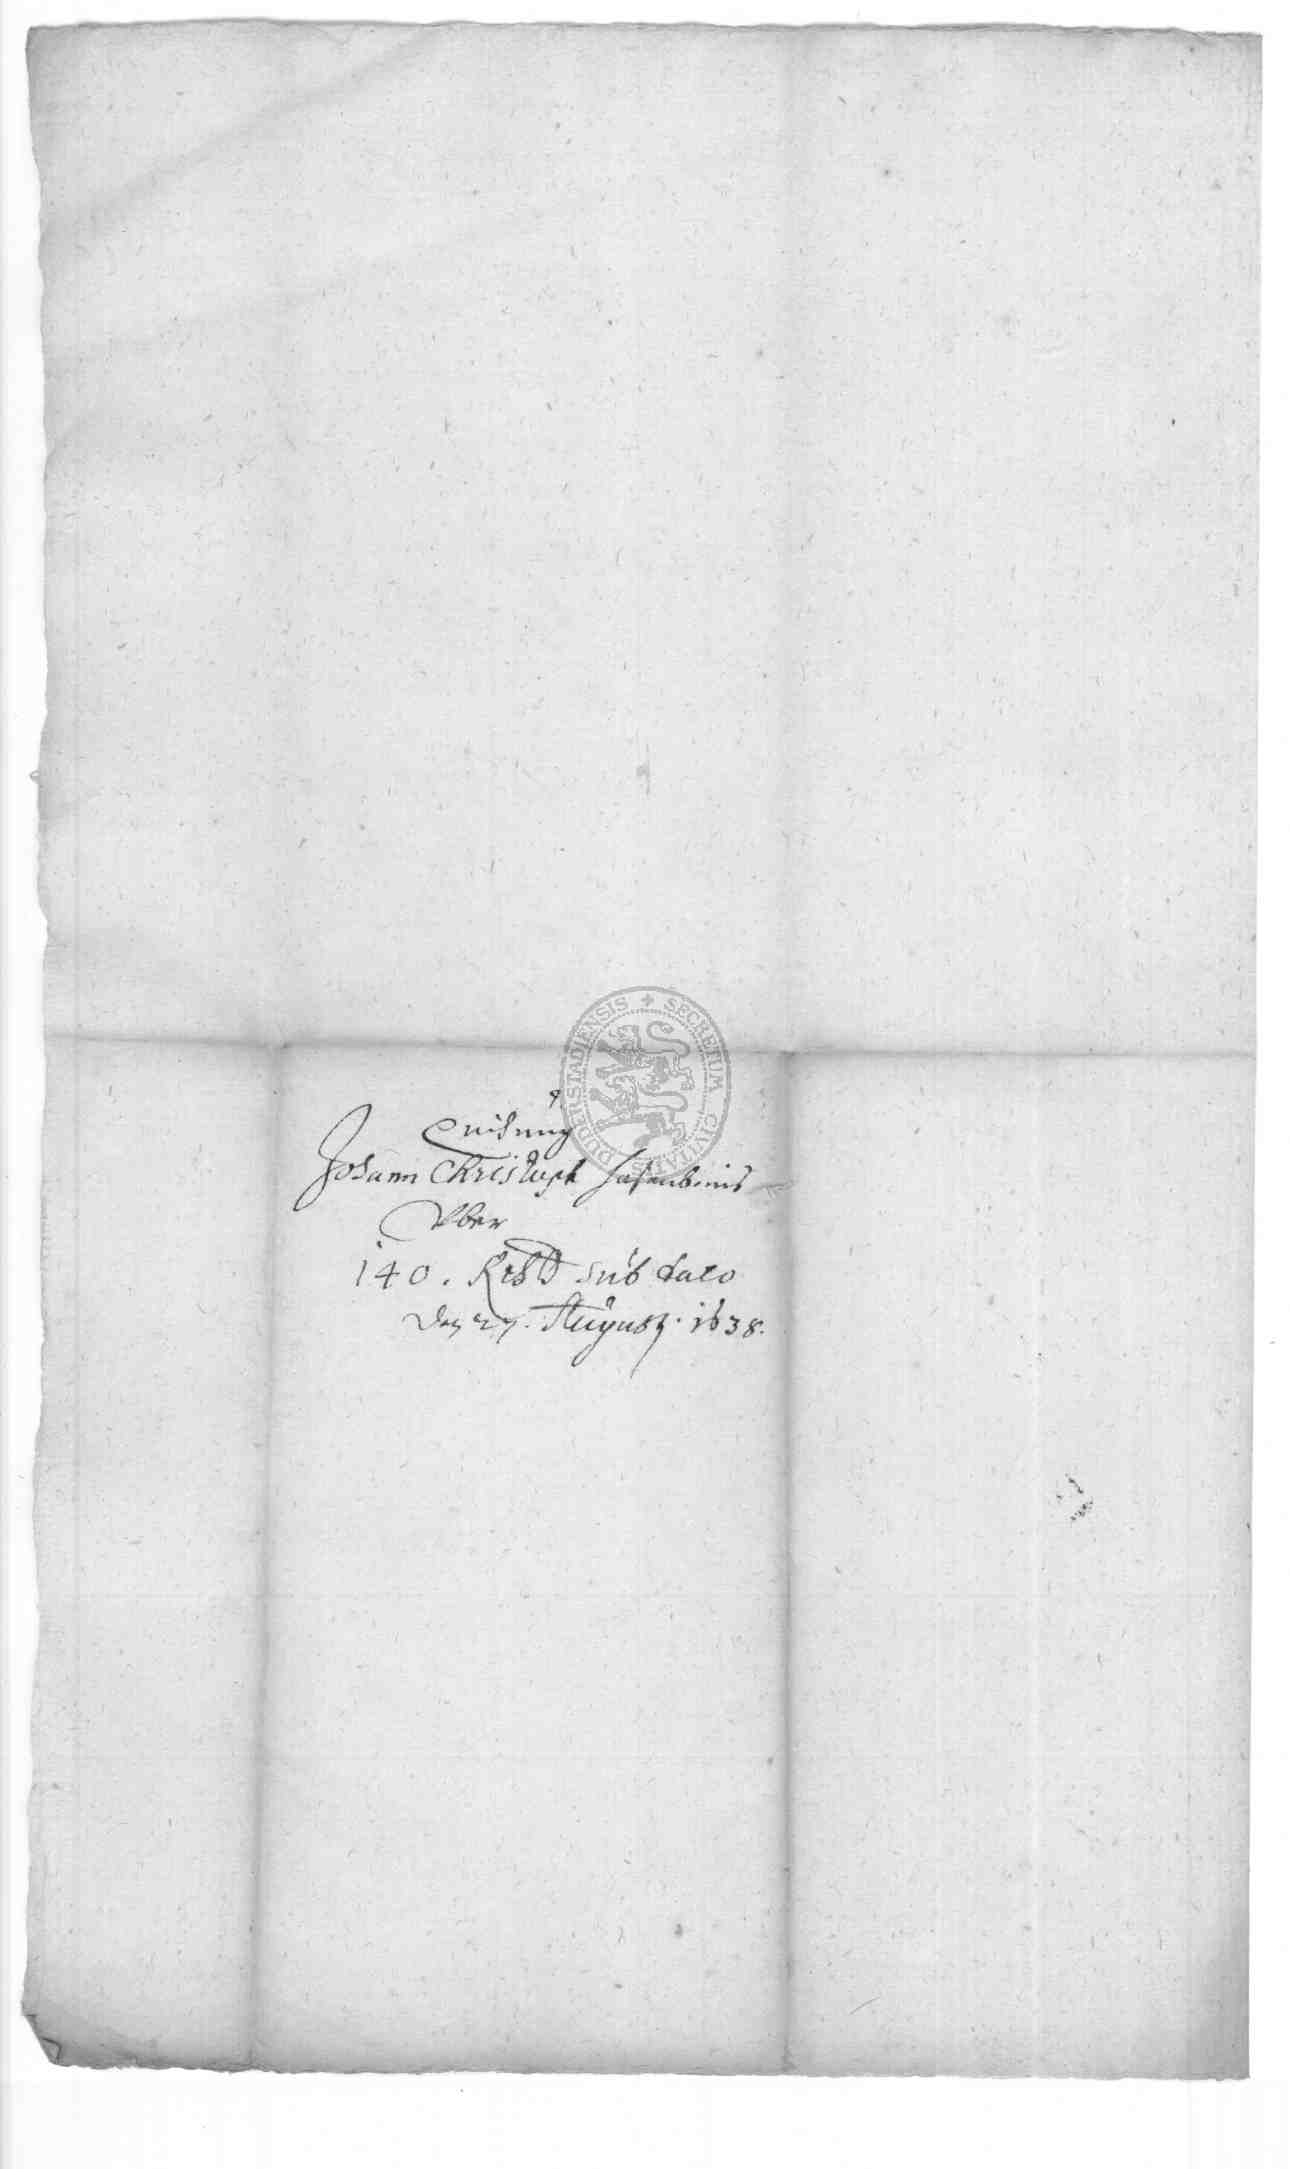 Quitung
Johann Christoph Hasenbeins
Vber
140. Rthl sub dato
den 27. August. 1638.
SECRETUM CIVITATIS DUDERSTADIENSIS